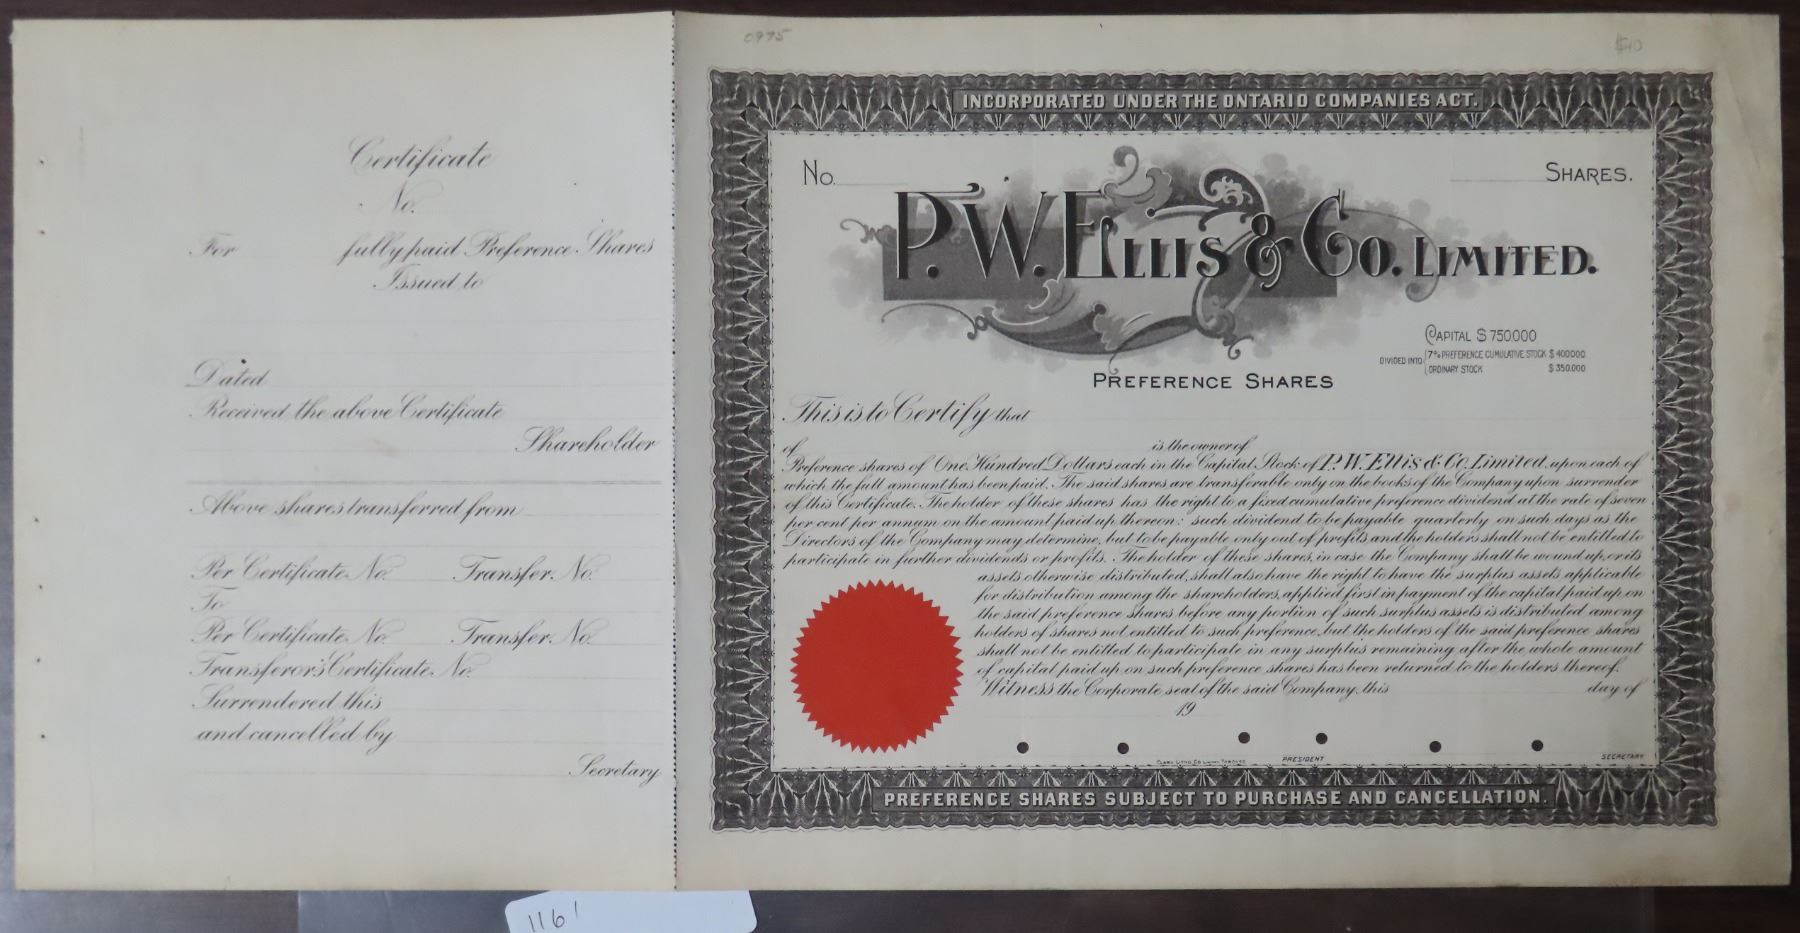 0975
$40
Certificate
No.
For fully paid Preference Shares
Issued to
Dated
Received the above Certificate
Shareholder
Above shares transferred from
Per Certificate No. Transfer No.
To
Per Certificate No. Transfer No.
Transferor's Certificate No.
Surrendered this
and cancelled by
Secretary
INCORPORATED UNDER THE ONTARIO COMPANIES ACT.
No. SHARES.
P. W. ELLIS & CO. LIMITED.
CAPITAL $750000
DIVIDED INTO 7% PREFERENCE CUMULATIVE STOCK $400000
ORDINARY STOCK $350.000
PREFERENCE SHARES
This is to Certify that
of is the owner of
Preference shares of One Hundred Dollars each in the Capital Stock of P. W. Ellis & Co. Limited, upon each of
which the full amount has been paid. The said shares are transferable only on the books of the Company upon surrender
of this Certificate. The holder of these shares has the right to a fixed cumulative preference dividend at the rate of seven
per cent per annum on the amount paid up thereon: such dividend to be payable quarterly on such days as the
Directors of the Company may determine, but to be payable only out of profits and the holders shall not be entitled to
participate in further dividends or profits. The holder of these shares, in case the Company shall be wound up, or its
assets otherwise distributed, shall also have the right to have the surplus assets applicable
for distribution among the shareholders, applied first in payment of the capital paid up on
the said preference shares before any portion of such surplus assets is distributed among
holders of shares not entitled to such preference, but the holders of the said preference shares
shall not be entitled to participate in any surplus remaining after the whole amount
of capital paid up on such preference shares has been returned to the holders thereof.
Witness the Corporate seal of the said Company, this day of
19
CLARK LITHO. CO. LIMITED TORONTO
PRESIDENT
SECRETARY
PREFERENCE SHARES SUBJECT TO PURCHASE AND CANCELLATION.
1161